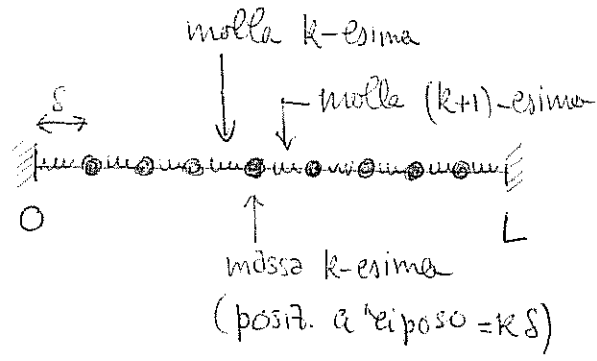 molla k-esima
δ
molla (k+1)-esima
O
L
massa k-esima
(posiz. a riposo = kδ)